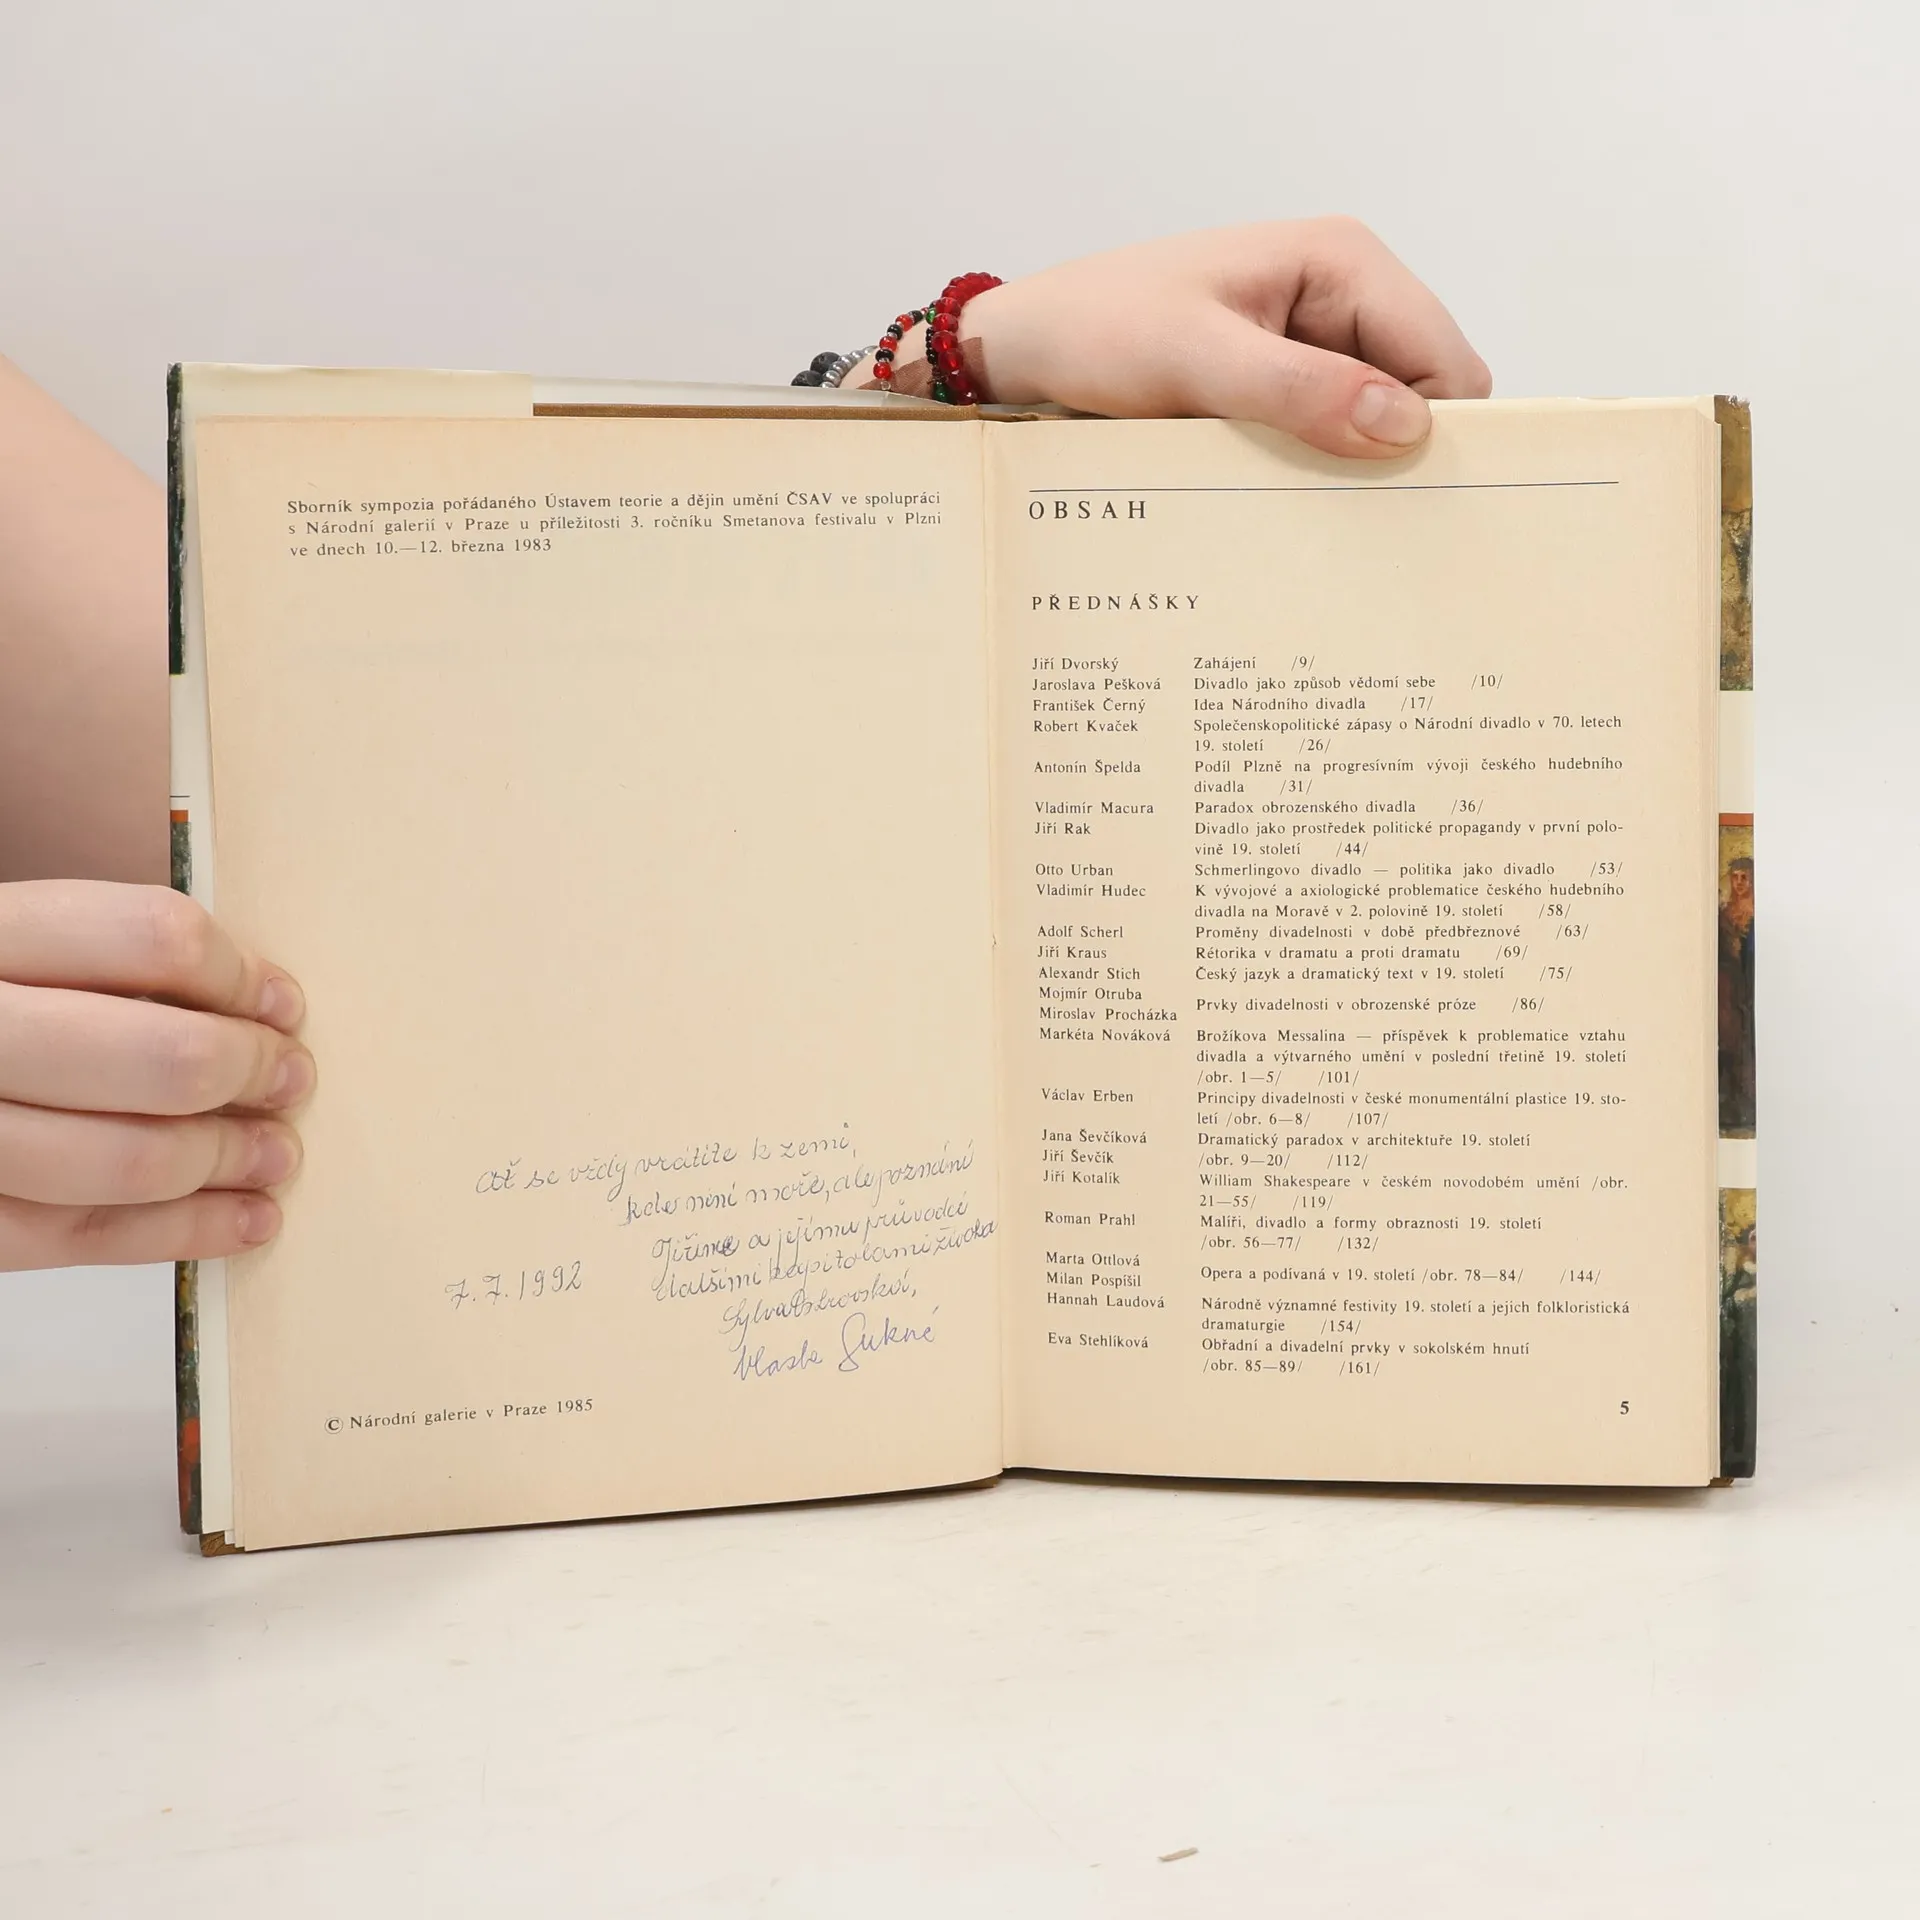 Sborník sympozia pořádaného Ústavem teorie a dějin umění ČSAV ve spolupráci
s Národní galerií v Praze u příležitosti 3. ročníku Smetanova festivalu v Plzni
ve dnech 10.—12. března 1983
Ať se vždy vrátíte k zemi,
kde není moře, ale poznání
Jiřině a jejímu průvodci
dalšími kapitolami života
Sylva
7. 7. 1992
Vlasta
© Národní galerie v Praze 1985
OBSAH
PŘEDNÁŠKY
Jiří Dvorský Zahájení /9/
Jaroslava Pešková Divadlo jako způsob vědomí sebe /10/
František Černý Idea Národního divadla /17/
Robert Kvaček Společenskopolitické zápasy o Národní divadlo v 70. letech
19. století /26/
Antonín Špelda Podíl Plzně na progresívním vývoji českého hudebního
divadla /31/
Vladimír Macura Paradox obrozenského divadla /36/
Jiří Rak Divadlo jako prostředek politické propagandy v první polo-
vině 19. století /44/
Otto Urban Schmerlingovo divadlo — politika jako divadlo /53/
Vladimír Hudec K vývojové a axiologické problematice českého hudebního
divadla na Moravě v 2. polovině 19. století /58/
Adolf Scherl Proměny divadelnosti v době předbřeznové /63/
Jiří Kraus Rétorika v dramatu a proti dramatu /69/
Alexandr Stich Český jazyk a dramatický text v 19. století /75/
Mojmír Otruba
Prvky divadelnosti v obrozenské próze /86/
Miroslav Procházka
Markéta Nováková Brožíkova Messalina — příspěvek k problematice vztahu
divadla a výtvarného umění v poslední třetině 19. století
/obr. 1—5/ /101/
Václav Erben Principy divadelnosti v české monumentální plastice 19. sto-
letí /obr. 6—8/ /107/
Jana Ševčíková Dramatický paradox v architektuře 19. století
Jiří Ševčík /obr. 9—20/ /112/
Jiří Kotalík William Shakespeare v českém novodobém umění /obr.
21—55/ /119/
Roman Prahl Malíři, divadlo a formy obraznosti 19. století
/obr. 56—77/ /132/
Marta Ottlová
Opera a podívaná v 19. století /obr. 78—84/ /144/
Milan Pospíšil
Hannah Laudová Národně významné festivity 19. století a jejich folkloristická
dramaturgie /154/
Eva Stehlíková Obřadní a divadelní prvky v sokolském hnutí
/obr. 85—89/ /161/
5